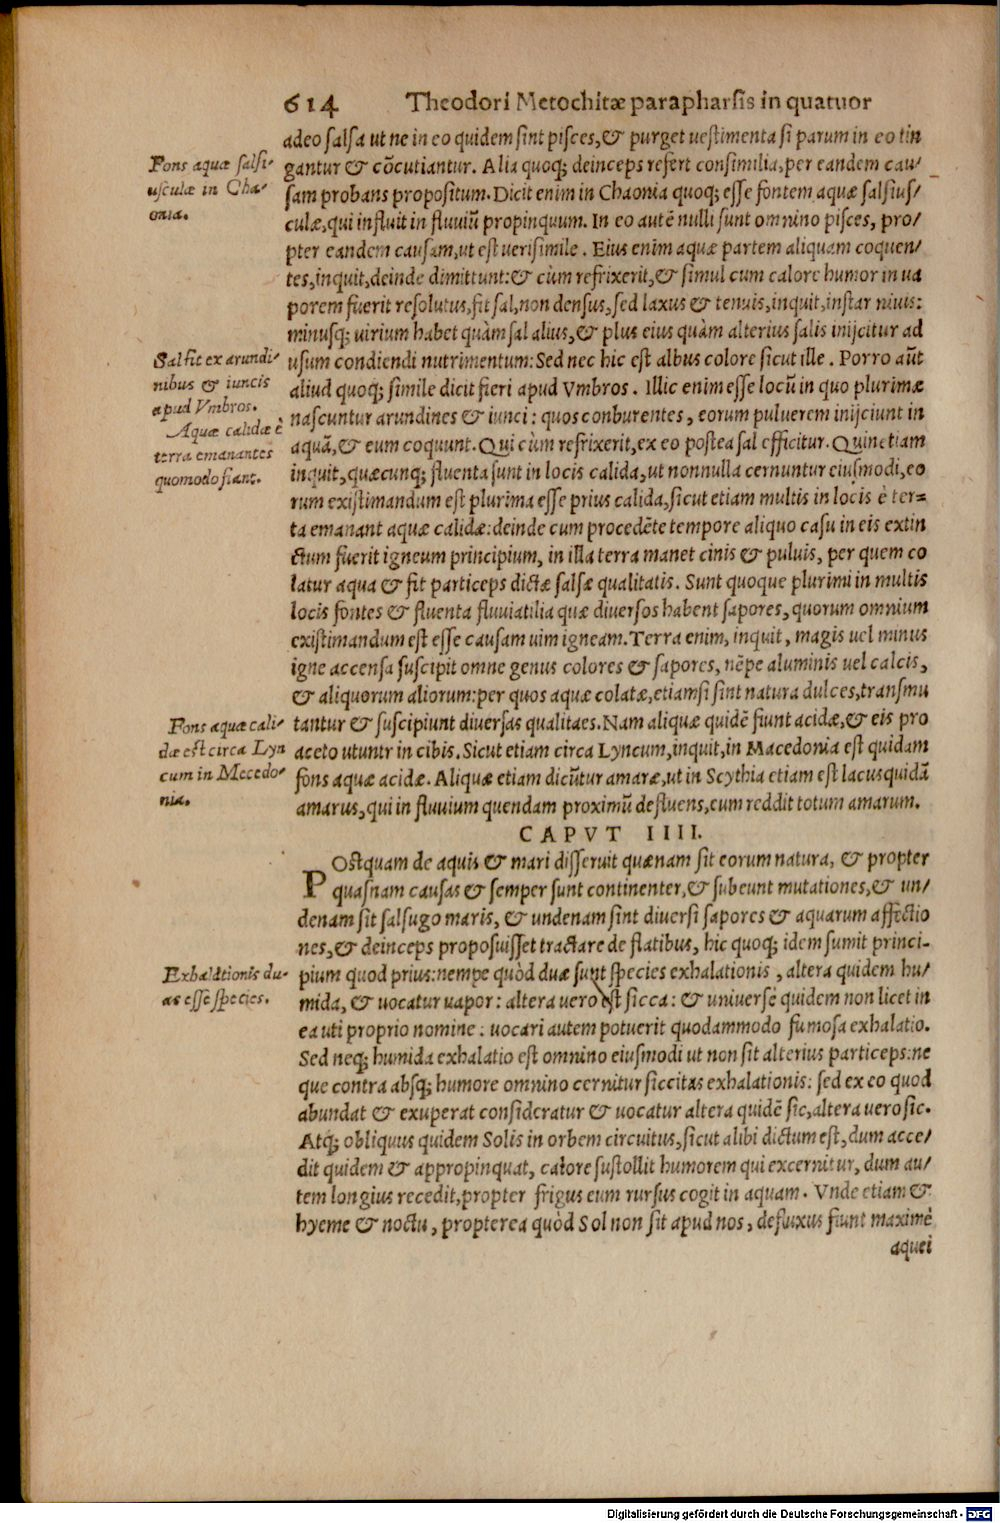 614 Theodori Metochitæ parapharsis in quatuor
adeo salsa ut ne in eo quidem sint pisces, & purget uestimenta si parum in eo tin
gantur & cõcutiantur. Alia quoq; deinceps refert consimilia, per eandem cau/
sam probans propositum. Dicit enim in Chaonia quoq; esse fontem aquæ salsius/
culæ, qui influit in fluuiũ propinquum. In eo autẽ nulli sunt omnino pisces, pro/
pter eandem causam, ut est uerisimile. Eius enim aquæ partem aliquam coquen/
tes, inquit, deinde dimittunt: & cùm refrixerit, & simul cum calore humor in ua
porem fuerit resolutus, fit sal, non densus, sed laxus & tenuis, inquit, instar niuis:
minusq; uirium habet quàm sal alius, & plus eius quàm alterius salis inijcitur ad
usum condiendi nutrimentum: Sed nec hic est albus colore sicut ille. Porro aũt
aliud quoq; simile dicit fieri apud Vmbros. Illic enim esse locũ in quo plurimæ
nascuntur arundines & iunci: quos conburentes, eorum puluerem inijciunt in
aquã, & eum coquunt. Qui cùm refrixerit, ex eo postea sal efficitur. Quinetiam
inquit, quæcunq; fluenta sunt in locis calida, ut nonnulla cernuntur eiusmodi, eo
rum existimandum est plurima esse prius calida, sicut etiam multis in locis è ter=
ta emanant aquæ calidæ: deinde cum procedẽte tempore aliquo casu in eis extin
ctum fuerit igneum principium, in illa terra manet cinis & puluis, per quem co
latur aqua & fit particeps dictæ salsæ qualitatis. Sunt quoque plurimi in multis
locis fontes & fluenta fluuiatilia quæ diuersos habent sapores, quorum omnium
existimandum est esse causam uim igneam. Terra enim, inquit, magis uel minus
igne accensa suscipit omne genus colores & sapores, nẽpe aluminis uel calcis,
& aliquorum aliorum: per quos aquæ colatæ, etiamsi sint natura dulces, transmu
tantur & suscipiunt diuersas qualitaes. Nam aliquæ quidẽ fiunt acidæ, & eis pro
aceto utuntr in cibis. Sicut etiam circa Lyncum, inquit, in Macedonia est quidam
fons aquæ acidæ. Aliquæ etiam dicũtur amaræ, ut in Scythia etiam est lacus quidã
amarus, qui in fluuium quendam proximũ defluens, eum reddit totum amarum.
Fons aquæ salsi/
usculæ in Cha/
onia.
Sal fit ex arundi/
nibus & iuncis
apud Vmbros.
Aquæ calidæ è
terra emanantes
quomodo fiant.
Fons aquæ cali/
dæ est circa Lyn
cum in Mecedo/
nia.
CAPVT IIII.
POstquam de aquis & mari disseruit quænam sit eorum natura, & propter
quasnam causas & semper sunt continenter, & subeunt mutationes, & un/
denam sit salsugo maris, & undenam sint diuersi sapores & aquarum affectio
nes, & deinceps proposuisset tractare de flatibus, hic quoq; idem sumit princi-
pium quod prius: nempe quòd duæ sunt species exhalationis, altera quidem hu/
mida, & uocatur uapor: altera uero est sicca: & uniuersè quidem non licet in
ea uti proprio nomine: uocari autem potuerit quodammodo fumosa exhalatio.
Sed neq; humida exhalatio est omnino eiusmodi ut non sit alterius particeps: ne
que contra absq; humore omnino cernitur siccitas exhalationis: sed ex eo quod
abundat & exuperat consideratur & uocatur altera quidẽ sic, altera uero sic.
Atq; obliquus quidem Solis in orbem circuitus, sicut alibi dictum est, dum acce/
dit quidem & appropinquat, calore sustollit humorem qui excernitur, dum au/
tem longius recedit, propter frigus eum rursus cogit in aquam. Vnde etiam &
hyeme & noctu, propterea quòd Sol non sit apud nos, defluxus fiunt maximè
aquei
Exhaldtionis du-
as esse species.
Digitalisierung gefördert durch die Deutsche Forschungsgemeinschaft - DFG